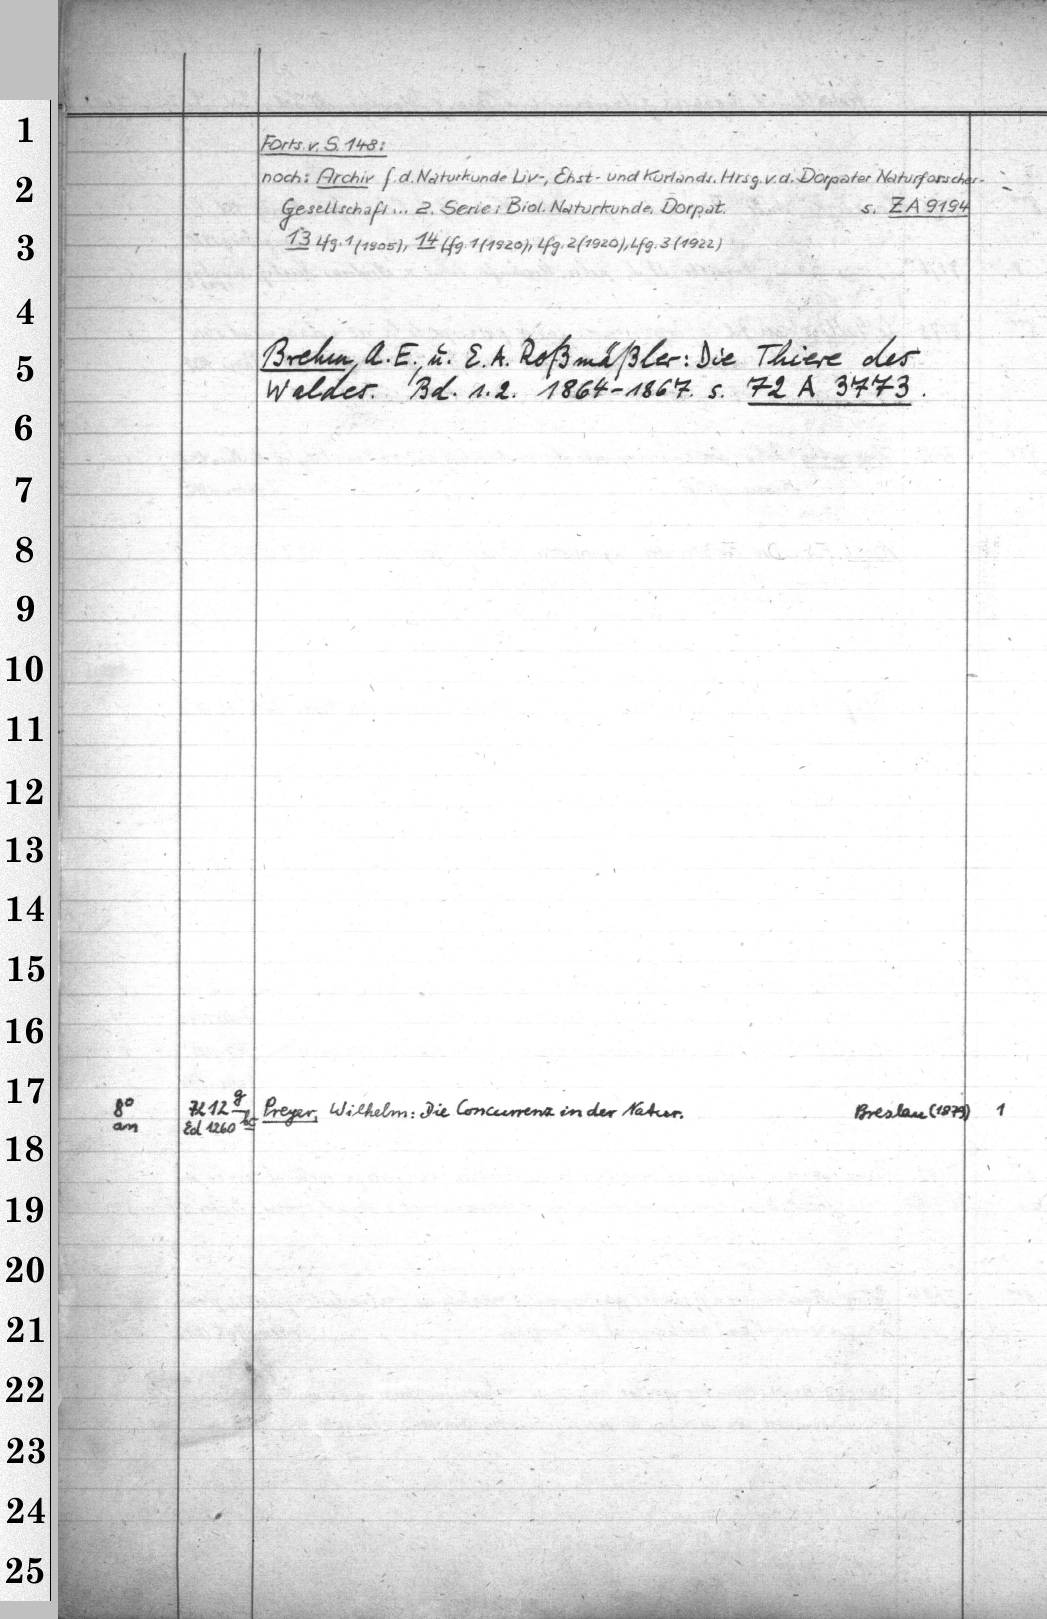 1
Forts. v. S. 148:
noch: Archiv f. d. Naturkunde Liv-, Ehst- und Kurlands. Hrsg. v. d. Dorpater Naturforscher-
2
Gesellschaft... 2. Serie: Biol. Naturkunde. Dorpat. s. ZA 9194
3
13 Lfg. 1 (1905), 14 Lfg. 1 (1920), Lfg. 2 (1920), Lfg. 3 (1922)
4
Brehm, A. E., u. E. A. Roßmäßler: Die Thiere des
5
Waldes. Bd. 1.2. 1864-1867. s. 72 A 3773.
6
7
8
9
10
11
12
13
14
15
16
17
8° 12 g Preyer, Wilhelm: Die Concurrenz in der Natur. Breslau (1879) 1
an Ed 1260
18
19
20
21
22
23
24
25